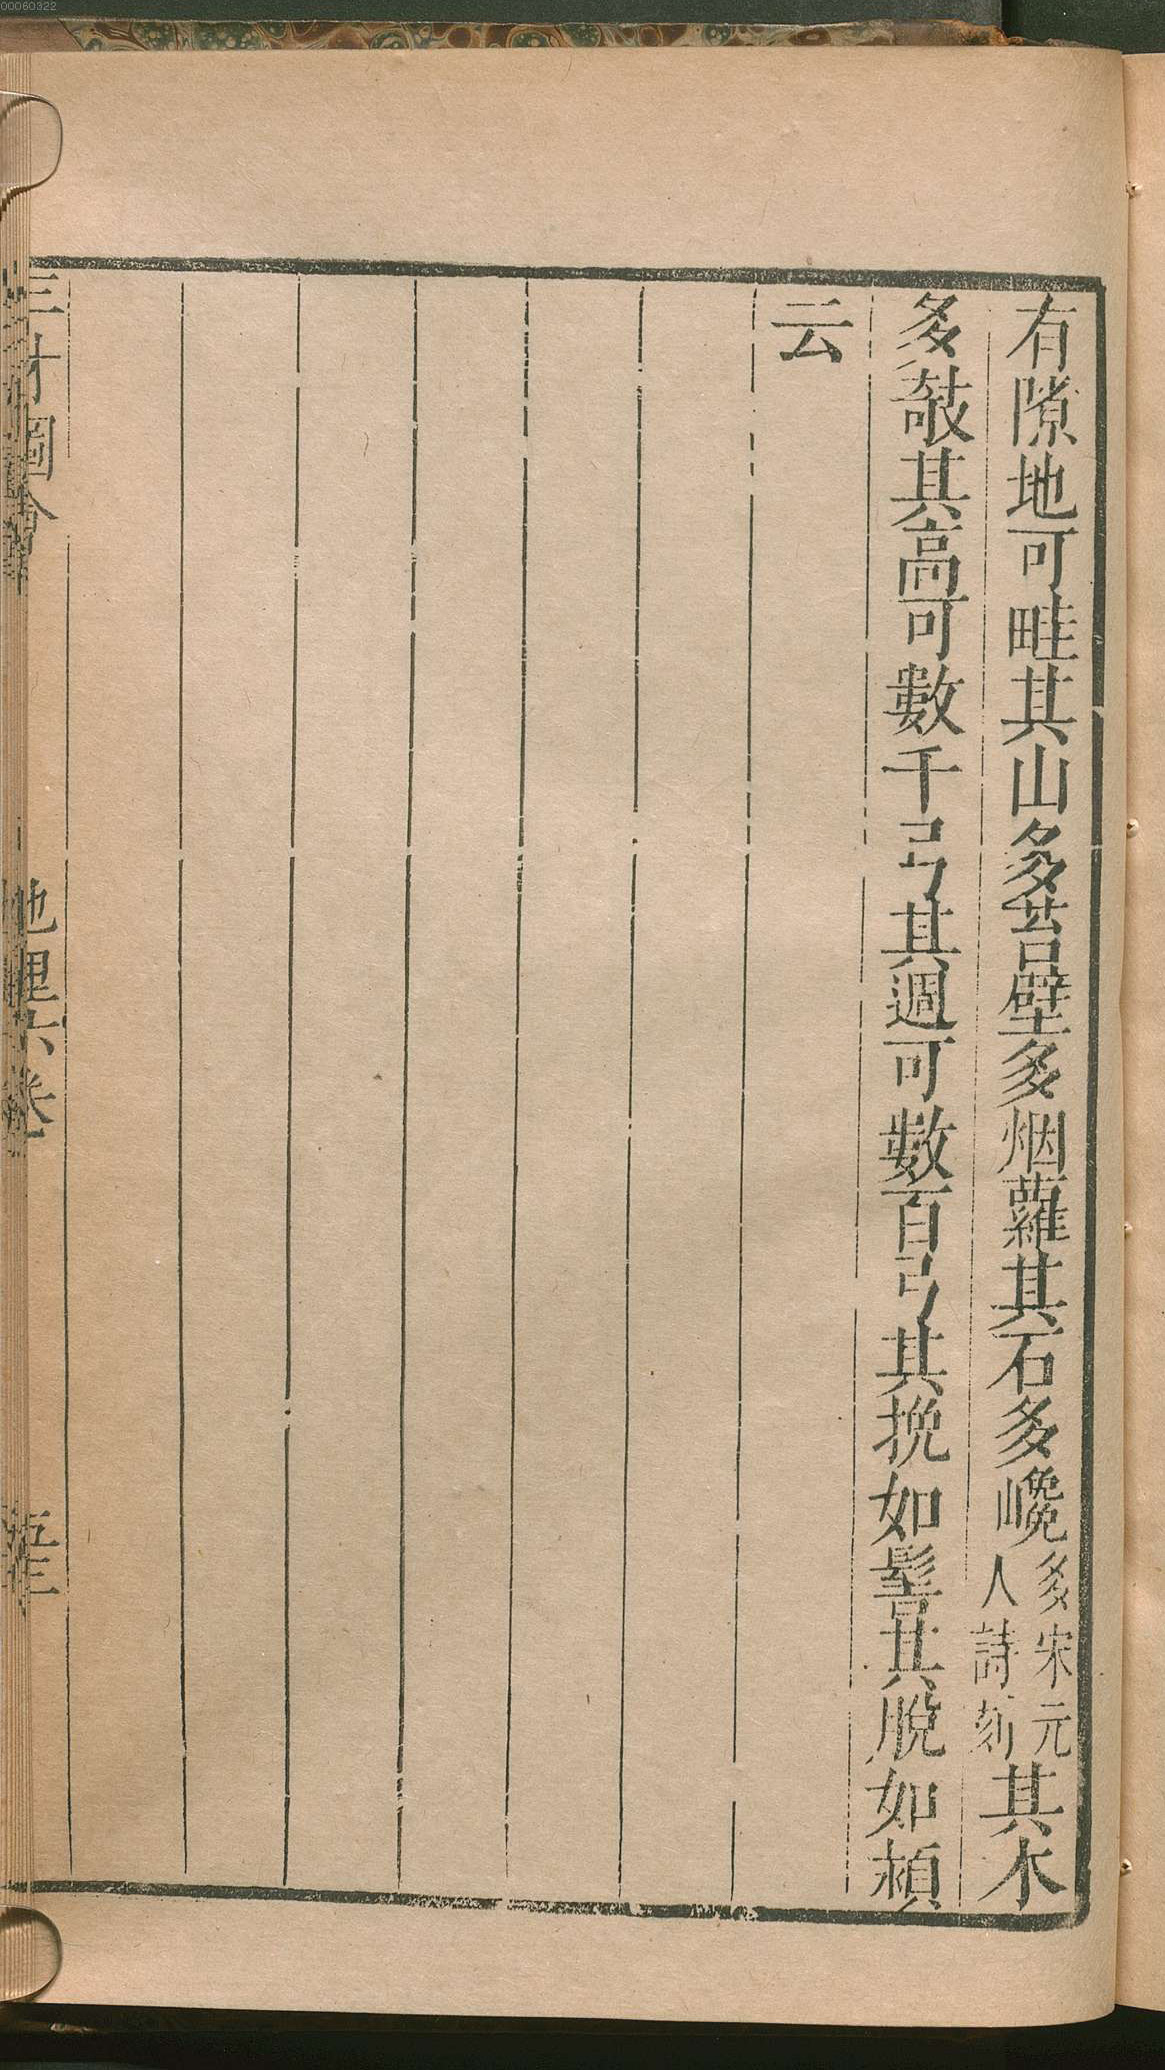 有隙地可畦其山多苔壁多烟蘿其石多巉多宋元人詩刻其木
多攲其高可數千弓其週可數百弓其挽如髻其脫如頮
云
三才圖會
地里六卷
五三
00060322